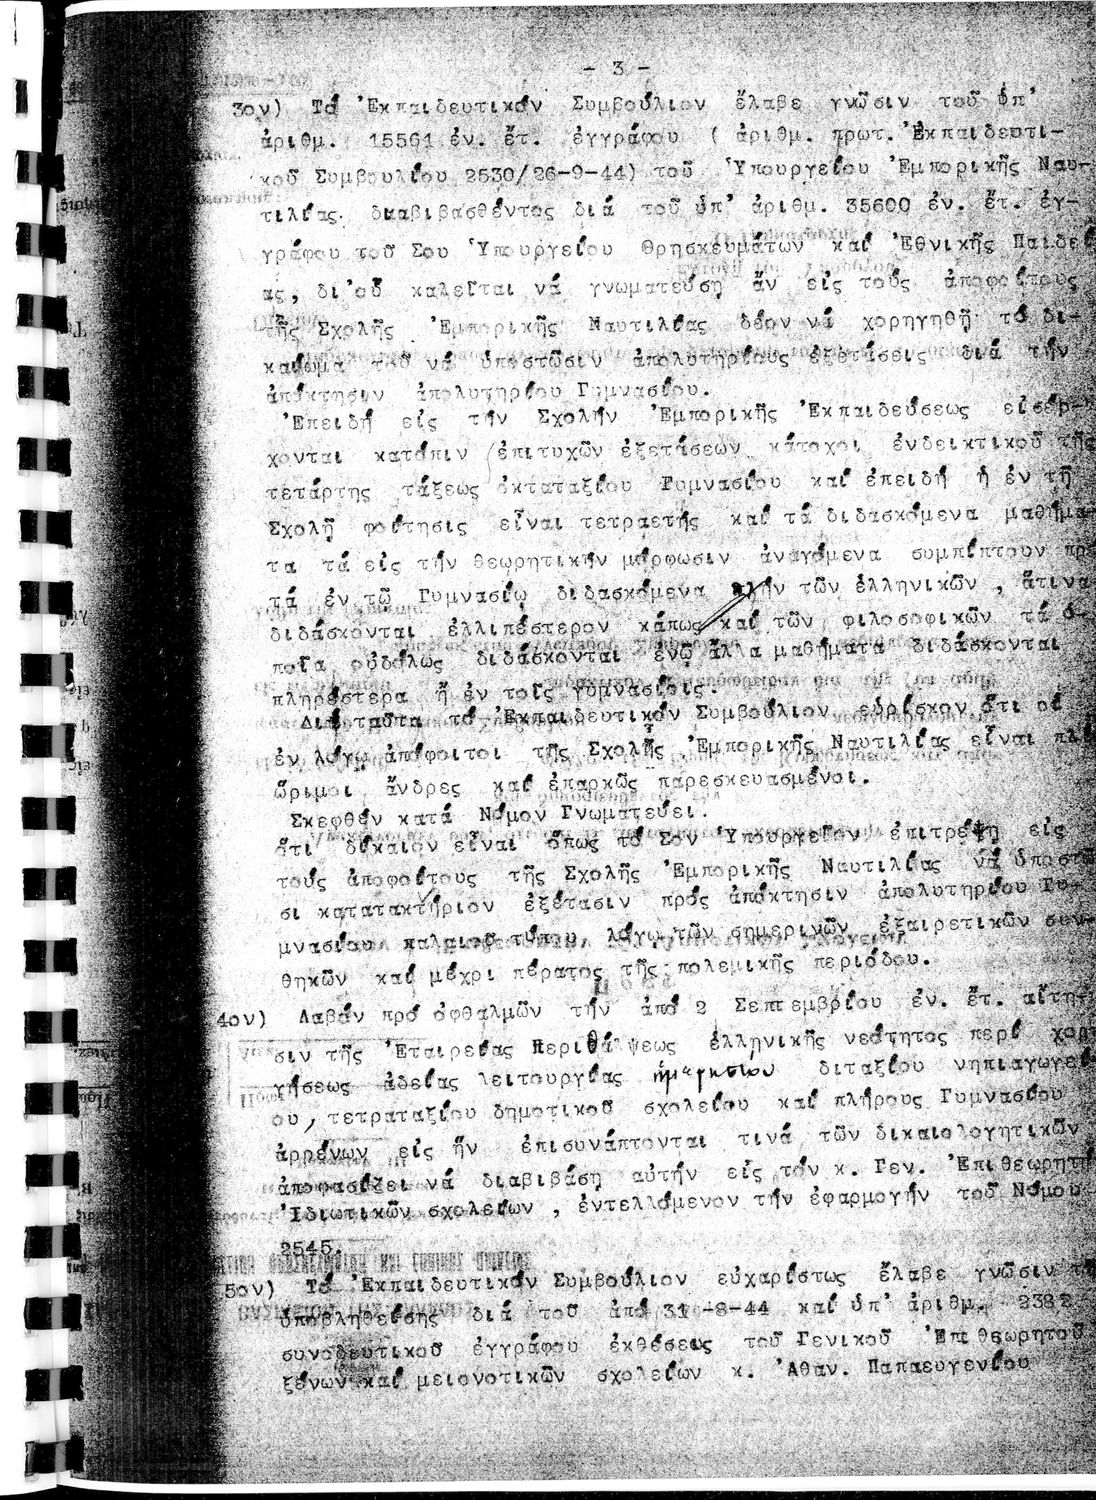 - 3 -
3ον) Τό Ἐκπαιδευτικόν Συμβούλιον ἔλαβε γνῶσιν τοῦ ὑπ'
ἀριθμ. 15561 ἐν. ἔτ. ἐγγράφου ( ἀριθμ. πρωτ. Ἐκπαιδευτι-
κοῦ Συμβουλίου 2530/26-9-44) τοῦ Ὑπουργείου Ἐμπορικῆς Ναυ-
τιλίας διαβιβασθέντος διά τοῦ ὑπ' ἀριθμ. 35600 ἐν. ἔτ. ἐγ-
γράφου τοῦ Σου Ὑπουργείου Θρησκευμάτων καί Ἐθνικῆς Παιδεί
ας, δι'οὗ καλεῖται νά γνωματεύση ἄν εἰς τούς ἀποφοίτους
τῆς Σχολῆς Ἐμπορικῆς Ναυτιλίας δέον νά χορηγηθῇ τό δι-
καίωμα τοῦ νά ὑποστῶσιν ἀπολυτηρίους ἐξετάσεις διά τήν
ἀπόκτησιν ἀπολυτηρίου Γυμνασίου.
Ἐπειδή εἰς τήν Σχολήν Ἐμπορικῆς Ἐκπαιδεύσεως εἰσέρ-
χονται κατόπιν ἐπιτυχῶν ἐξετάσεων κάτοχοι ἐνδεικτικοῦ τῆς
τετάρτης τάξεως ὀκταταξίου Γυμνασίου καί ἐπειδή ἡ ἐν τῇ
Σχολῇ φοίτησις εἶναι τετραετής καί τά διδασκόμενα μαθήμα-
τα τά εἰς τήν θεωρητικήν μόρφωσιν ἀναγόμενα συμπίπτουν πρό
τά ἐν τῷ Γυμνασίῳ διδασκόμενα πλήν τῶν ἑλληνικῶν , ἅτινα
διδάσκονται ἐλλιπέστερον κάπως καί τῶν φιλοσοφικῶν τά ὁ-
ποῖα οὐδόλως διδάσκονται ἐνῷ ἄλλα μαθήματα διδάσκονται
πληρέστερα ἤ ἐν τοῖς γυμνασίοις.
Διά ταῦτα τό Ἐκπαιδευτικόν Συμβούλιον εὑρίσκον ὅτι οἱ
ἐν λόγῳ ἀπόφοιτοι τῆς Σχολῆς Ἐμπορικῆς Ναυτιλίας εἶναι πλέ
ὥριμοι ἄνδρες καί ἐπαρκῶς παρεσκευασμένοι.
Σκεφθέν κατά Νόμον Γνωματεύει.
ὅτι δίκαιον εἶναι ὅπως τό Σόν Ὑπουργεῖον ἐπιτρέψῃ εἰς
τούς ἀποφοίτους τῆς Σχολῆς Ἐμπορικῆς Ναυτιλίας νά ὑποστῶ
σι κατατακτήριον ἐξέτασιν πρός ἀπόκτησιν ἀπολυτηρίου Γυ-
μνασίου παλαιοῦ τύπου λόγῳ τῶν σημερινῶν ἐξαιρετικῶν συν-
θηκῶν καί μέχρι πέρατος τῆς πολεμικῆς περιόδου.
4ον) Λαβόν πρό ὀφθαλμῶν τήν ἀπό 2 Σεπτεμβρίου ἐν. ἔτ. αἴτη-
σιν τῆς Ἑταιρείας Περιθάλψεως ἑλληνικῆς νεότητος περί χορ
γήσεως ἀδείας λειτουργίας διταξίου νηπιαγωγεί
ου, τετραταξίου δημοτικοῦ σχολείου καί πλήρους Γυμνασίου
ἀρρένων εἰς ἥν ἐπισυνάπτονται τινά τῶν δικαιολογητικῶν
ἀποφασίζει νά διαβιβάσῃ αὐτήν εἰς τόν κ. Γεν. Ἐπιθεωρητή
Ἰδιωτικῶν σχολείων , ἐντελλόμενον τήν ἐφαρμογήν τοῦ Νόμου
2545.
5ον) Τό Ἐκπαιδευτικόν Συμβούλιον εὐχαρίστως ἔλαβε γνῶσιν τῆ
ὑποβληθείσης διά τοῦ ἀπό 31 -8-44 καί ὑπ' ἀριθμ. 2382
συνοδευτικοῦ ἐγγράφου ἐκθέσεως τοῦ Γενικοῦ Ἐπιθεωρητοῦ
ξένων καί μειονοτικῶν σχολείων κ. Ἀθαν. Παπαευγενίου